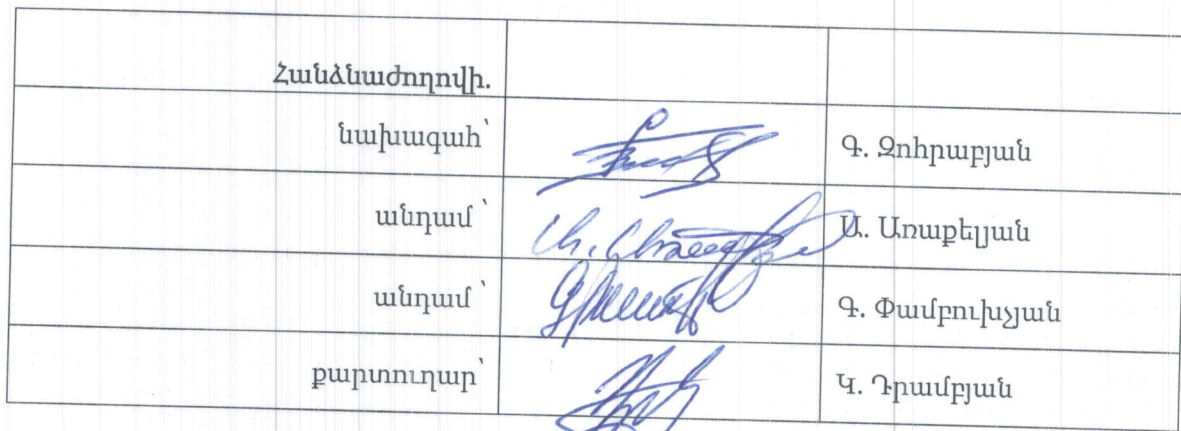 Հանձնաժողովի.
նախագահ՝ Գ. Զոհրաբյան
անդամ ՝ Ա. Առաքելյան
անդամ ՝ Գ. Փամբուխչյան
քարտուղար՝ Կ. Դրամբյան